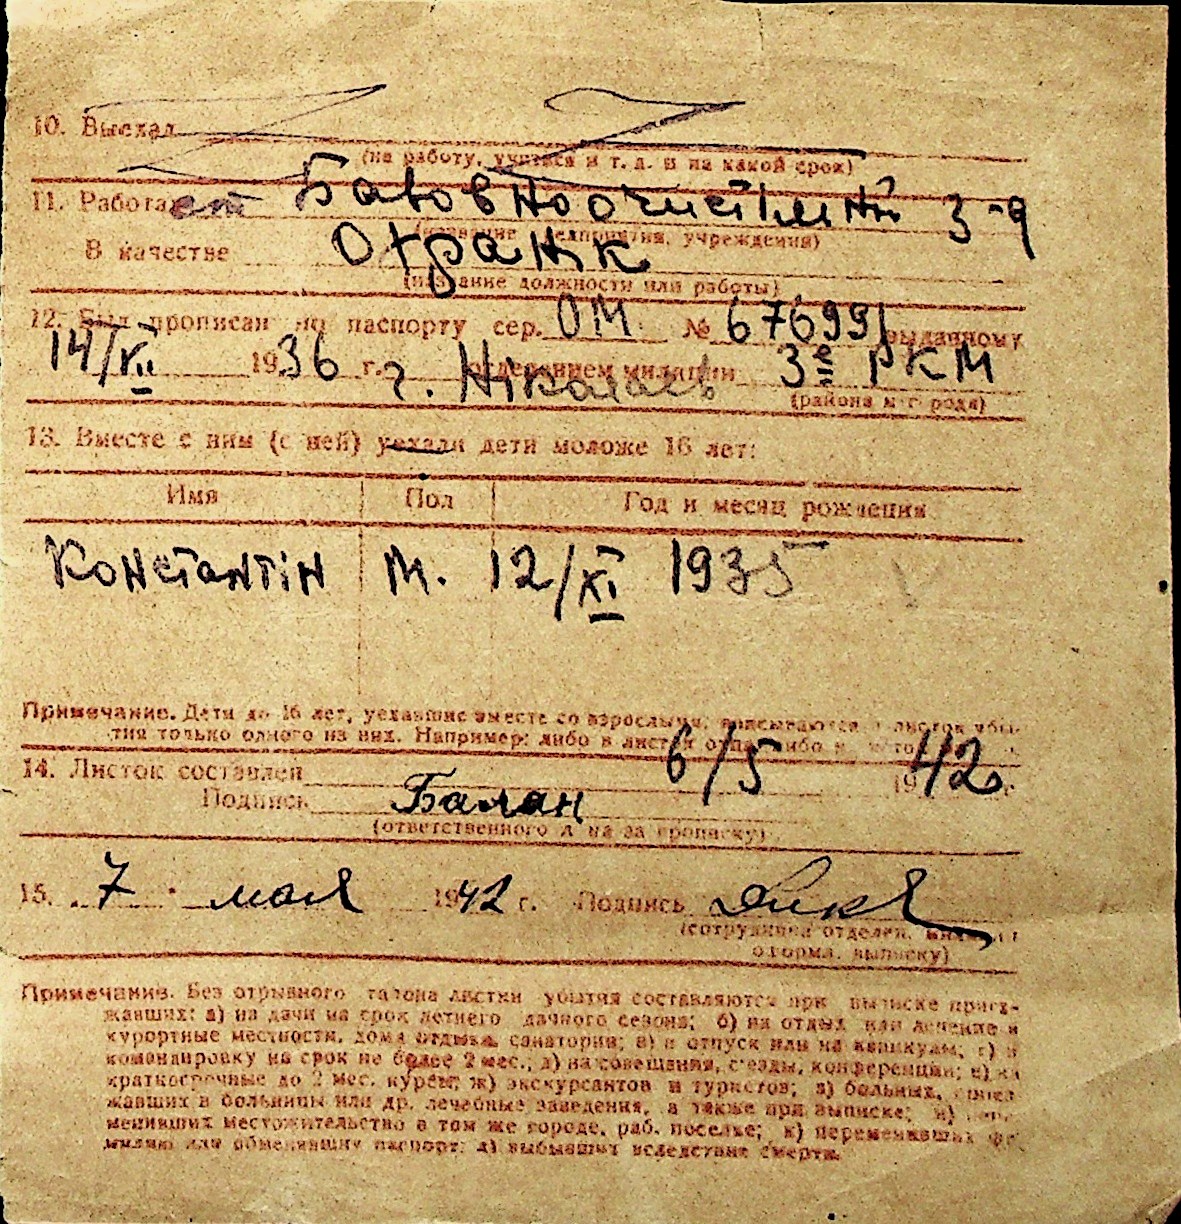 10. Выехал
(на работу, учиться и т. д. и на какой срок)
11. Работает Бавовноочистельний з-д
(название предприятия, учреждения)
В качестве Охранік
(название должности или работы)
12. Был прописан по паспорту сер. ОМ № 676991 выданному
14/XI 1936 г. г. Ніколаев отделением милиции 3е РКМ
(района и города)
13. Вместе с ним (с ней) уехали дети моложе 16 лет:
Имя Пол Год и месяц рождения
Константін М. 12/XI 1935
Примечание. Дети до 16 лет, уехавшие вместе со взрослыми, вписываются в листок убы-
тия только одного из них. Например: либо в листок отца, либо
14. Листок составлен 6/5 1942 г.
Подпись Балан
(ответственного лица за прописку)
15. „7" мая 1942 г. Подпись
(сотрудника отделен. милиции
оформл. выписку)
Примечание. Без отрывного талона листки убытия составляются при выписке приез-
жавших: а) на дачи на срок летнего дачного сезона; б) на отдых или лечение в
курортные местности, дома отдыха, санатории; в) в отпуск или на каникулы; г) в
командировку на срок не более 2 мес.; д) на совещания, съезды, конференции; е) на
краткосрочные до 2 мес. курсы; ж) экскурсантов и туристов; з) больных,
жавших в больницы или др. лечебные заведения, а также при выписке; и) пере-
менивших местожительство в том же городе, раб. поселке; к) переменивших фа-
милию или обменявших паспорт; л) выбывших вследствие смерти.